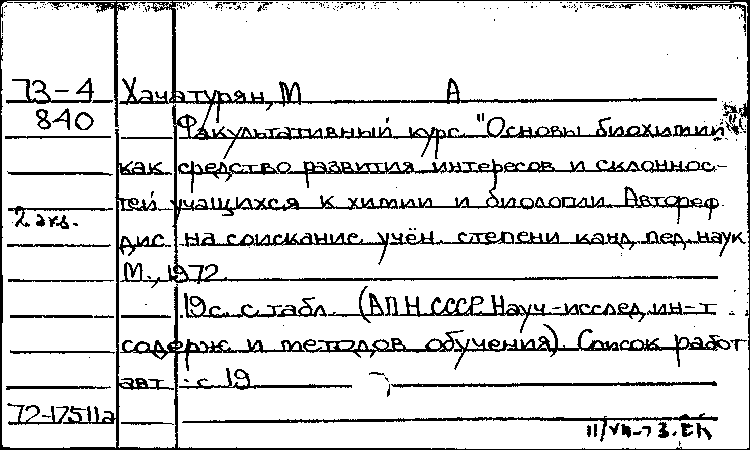 73-4 Хачатурян, М А
840 Факультативный курс "Основы биохимии"
как средство развития интересов и склоннос-
тей учащихся к химии и биологии. Автореф.
2 экз.
дис. на соискание учён. степени канд. пед. наук
М., 1972.
19 с. с табл. (АПН СССР. Науч.-исслед. ин-т
содерж. и методов обучения). Список работ
авт.: с. 19
72-17511а
11/VII-73. ЕК